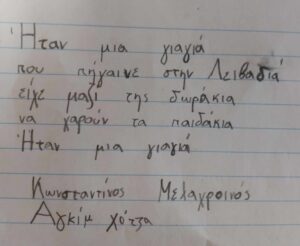 Ήταν μια γιαγιά
που πήγαινε στην Λειβαδιά
είχε μαζί της δωράκια
να χαρούν τα παιδάκια
Ήταν μια γιαγιά
Κωνσταντίνος Μελαχροινός
Αγκίμ χότζα